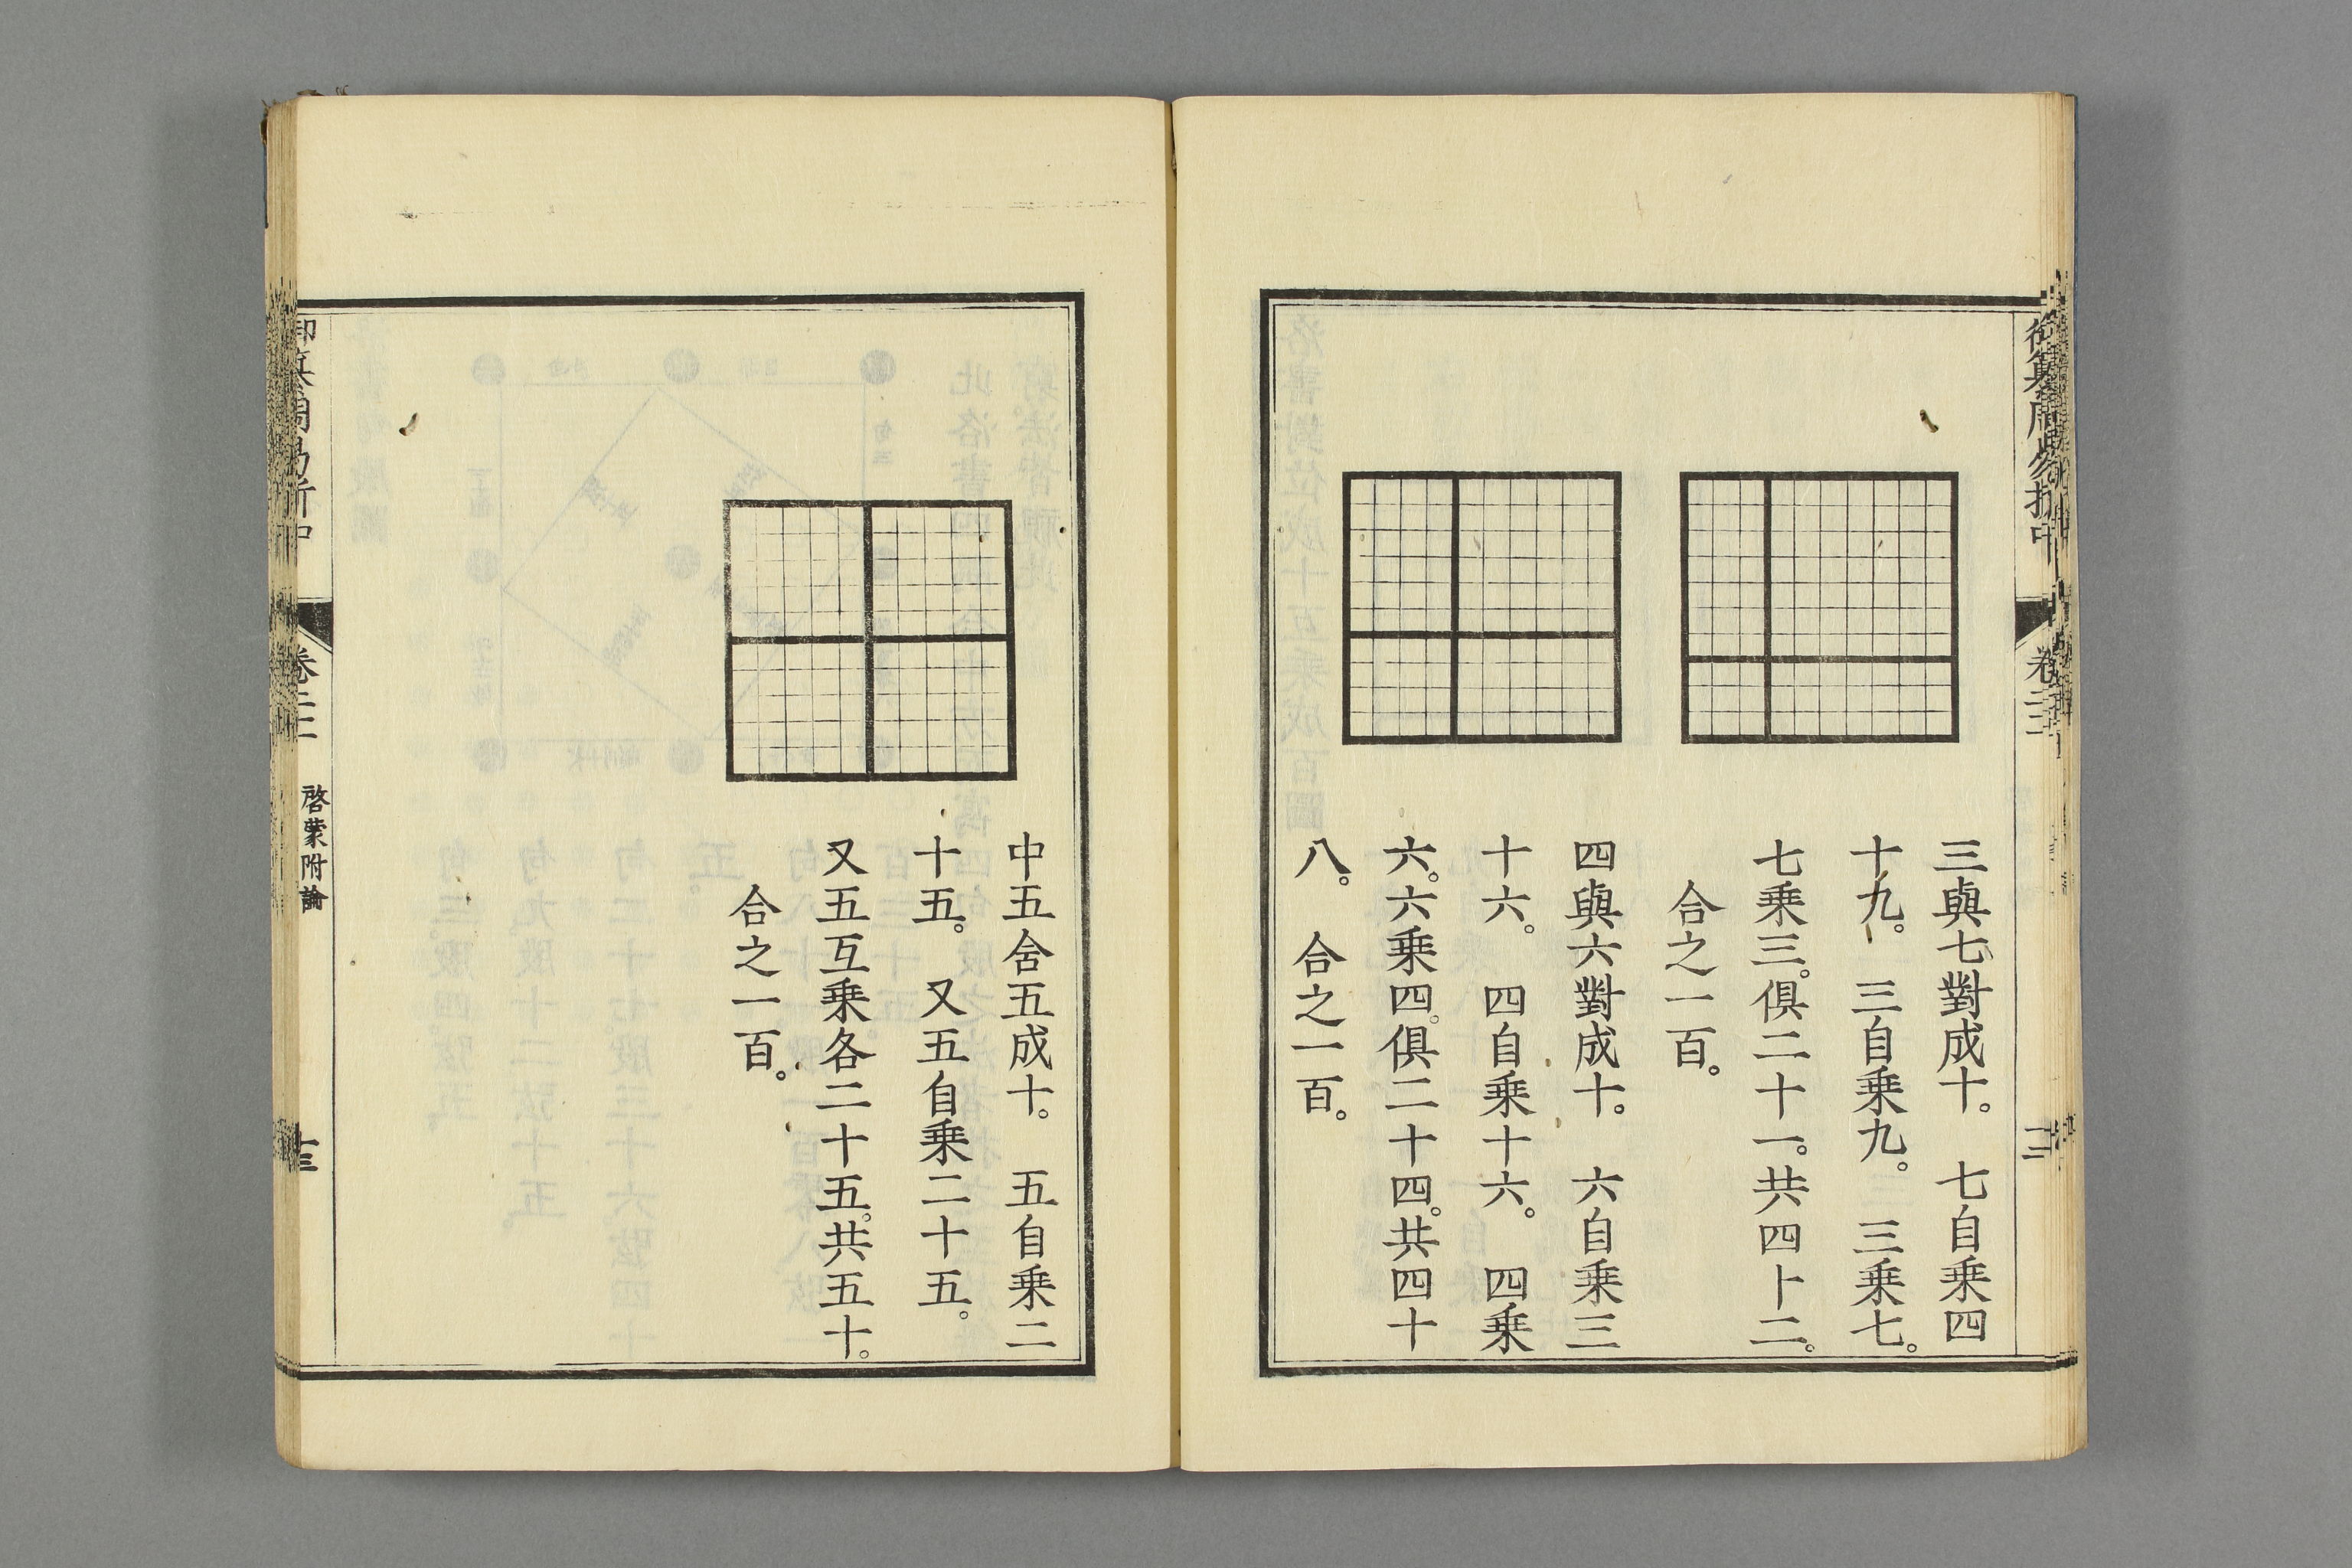 三與七對成十。七自乘四
十九。三自乘九。三乘七。
七乘三。俱二十一。共四十二。
合之一百。
四與六對成十。六自乘三
十六。四自乘十六。四乘
六。六乘四。俱二十四。共四十
八。合之一百。
中五含五成十。五自乘二
十五。又五自乘二十五。
又五互乘各二十五。共五十。
合之一百。
御纂周易折中
卷二十一
啓蒙附論
十三